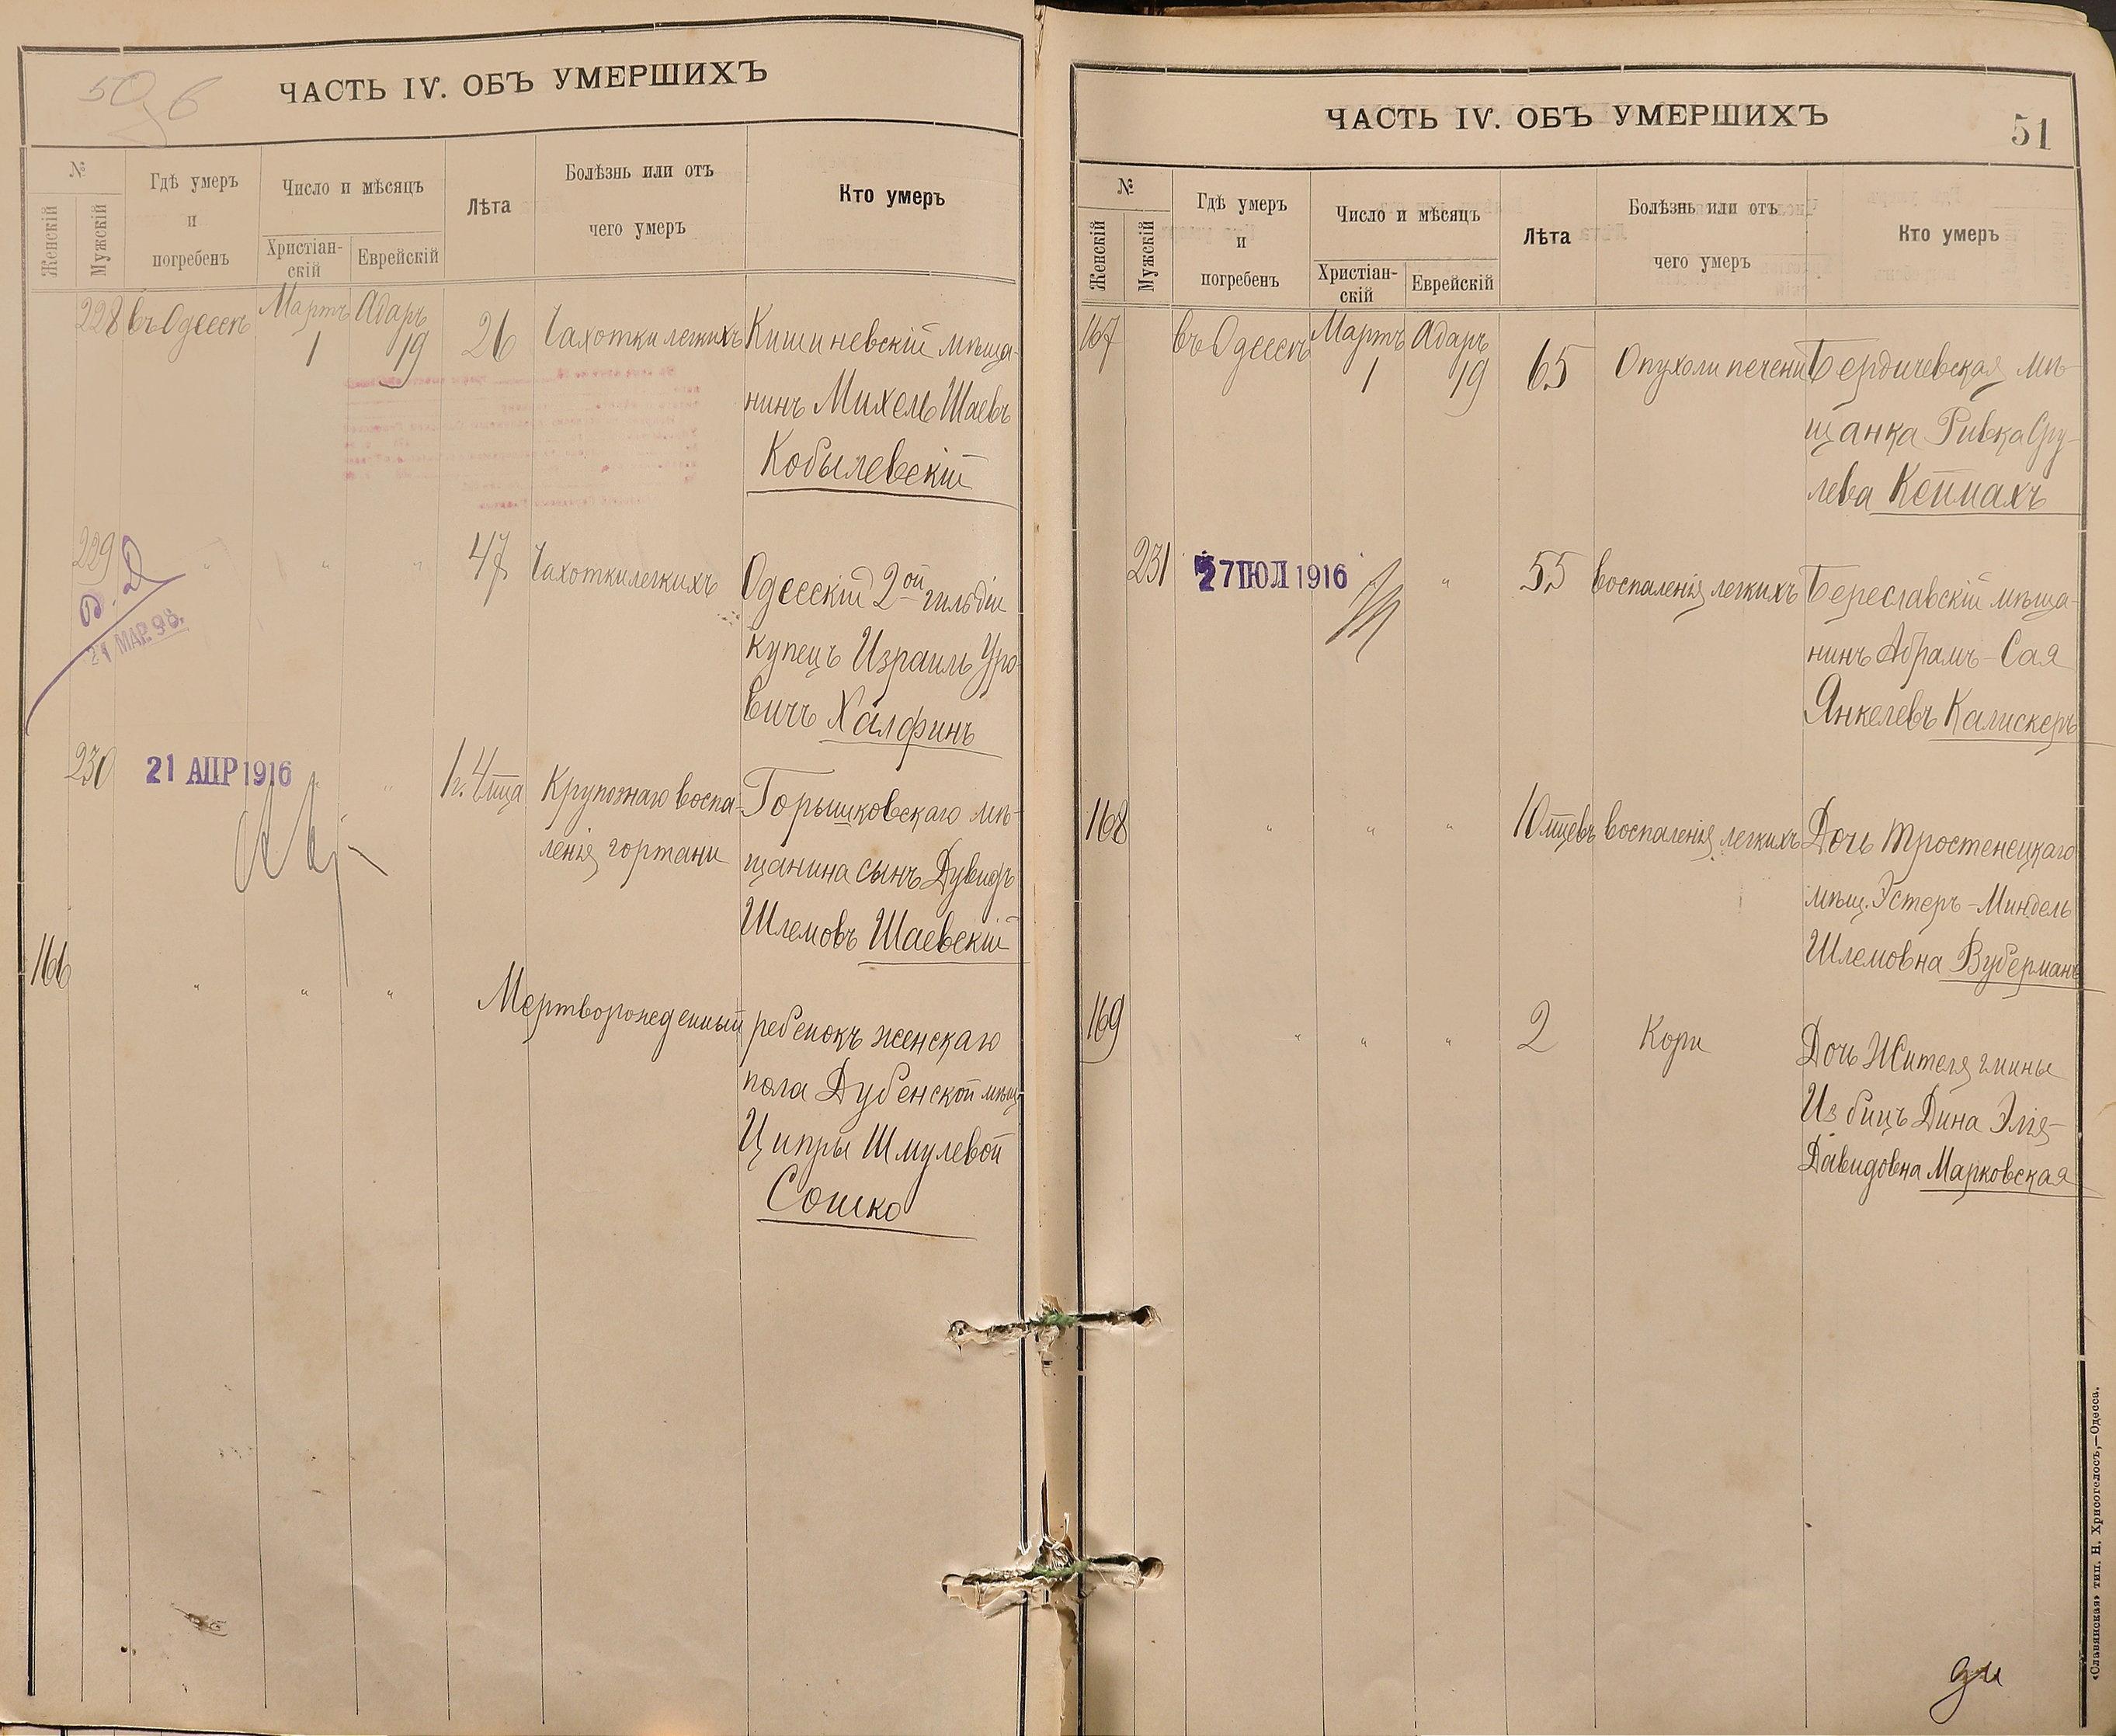 ЧАСТЬ IV. ОБЪ УМЕРШИХЪ
№
Женскій
Мужскій
Гдѣ умеръ
и
погребенъ
Число и мѣсяцъ
Христіан-
скій
Еврейскій
Лѣта
Болѣзнь или отъ
чего умеръ
Кто умеръ
228 въ Одессѣ Мартъ 1 Адаръ 19 26 Чахотки легкихъ Кишиневскій мѣща-
нинъ Михель Шаевъ
Кобылевскій
229 " " " 47 Чахотки легкихъ Одесскій 2ой гильдіи
купецъ Израиль Уро-
вичъ Халфинъ
21 МАР. 96.
230 21 АПР 1916 " 1 г. 4 мца Крупознаго воспа-
ленія гортани
Горышковскаго мѣ-
щанина сынъ Дувидъ
Шлемовъ Шаевскій
166 " " " Мертворожденный ребенокъ женскаго
пола Дубенской мѣщ.
Ципры Шмулевой
Сошко
ЧАСТЬ IV. ОБЪ УМЕРШИХЪ
51
№
Женскій
Мужскій
Гдѣ умеръ
и
погребенъ
Число и мѣсяцъ
Христіан-
скій
Еврейскій
Лѣта
Болѣзнь или отъ
чего умеръ
Кто умеръ
167 въ Одессѣ Мартъ 1 Адаръ 19 65 Опухоли печени Бердичевская мѣ-
щанка Ривка Сру-
лева Кеймахъ
231 27 ІЮЛ 1916 " 55 Воспаленія легкихъ Береславскій мѣща-
нинъ Абрамъ-Сая
Янкелевъ Калискеръ
168 " " " 10 мцевъ воспаленія легкихъ Дочь Тростенецкаго
мѣщ. Эстеръ-Миндель
Шлемовна Вуберманъ
169 " " " 2 Кори Дочь Жителя гмины
Избицъ Дина Элія-
Давидовна Марковская
«Славянская» тип. Н. Хрисогелосъ,—Одесса.